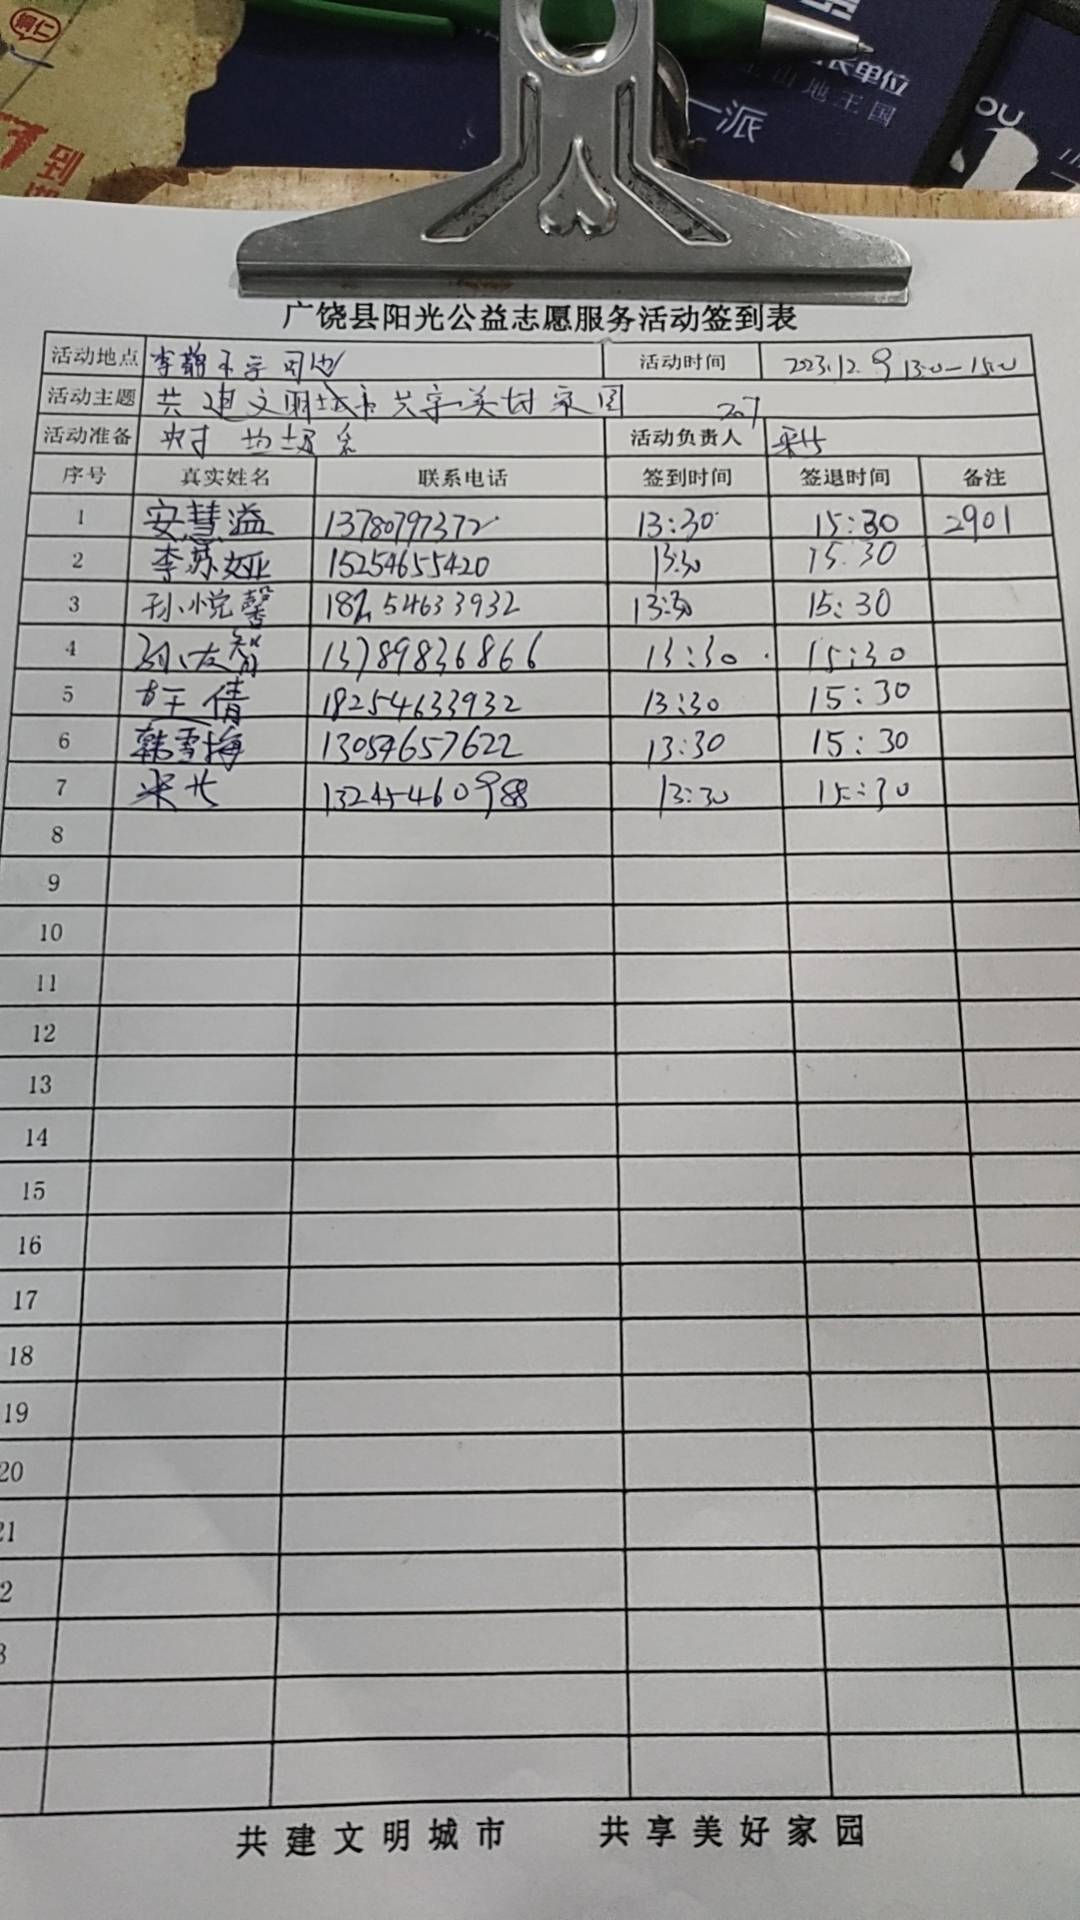 铜仁
到
单位
王国
一派
OU
广饶县阳光公益志愿服务活动签到表
活动地点 活动时间 2023.12.9 13:0—15:0
活动主题 共建文明城市共享美好家园 207
活动准备 活动负责人
序号 真实姓名 联系电话 签到时间 签退时间 备注
1 安慧溢 13780797372 13:30 15:30 2901
2 李苏娅 15254655420 13:30 15:30
3 孙悦馨 18254633932 13:30 15:30
4 13789836866 13:30 15:30
5 倩 18254633932 13:30 15:30
6 韩雪梅 13054657622 13:30 15:30
7 13:30 15:30
8
9
10
11
12
13
14
15
16
17
18
19
20
21
2
3
共建文明城市 共享美好家园